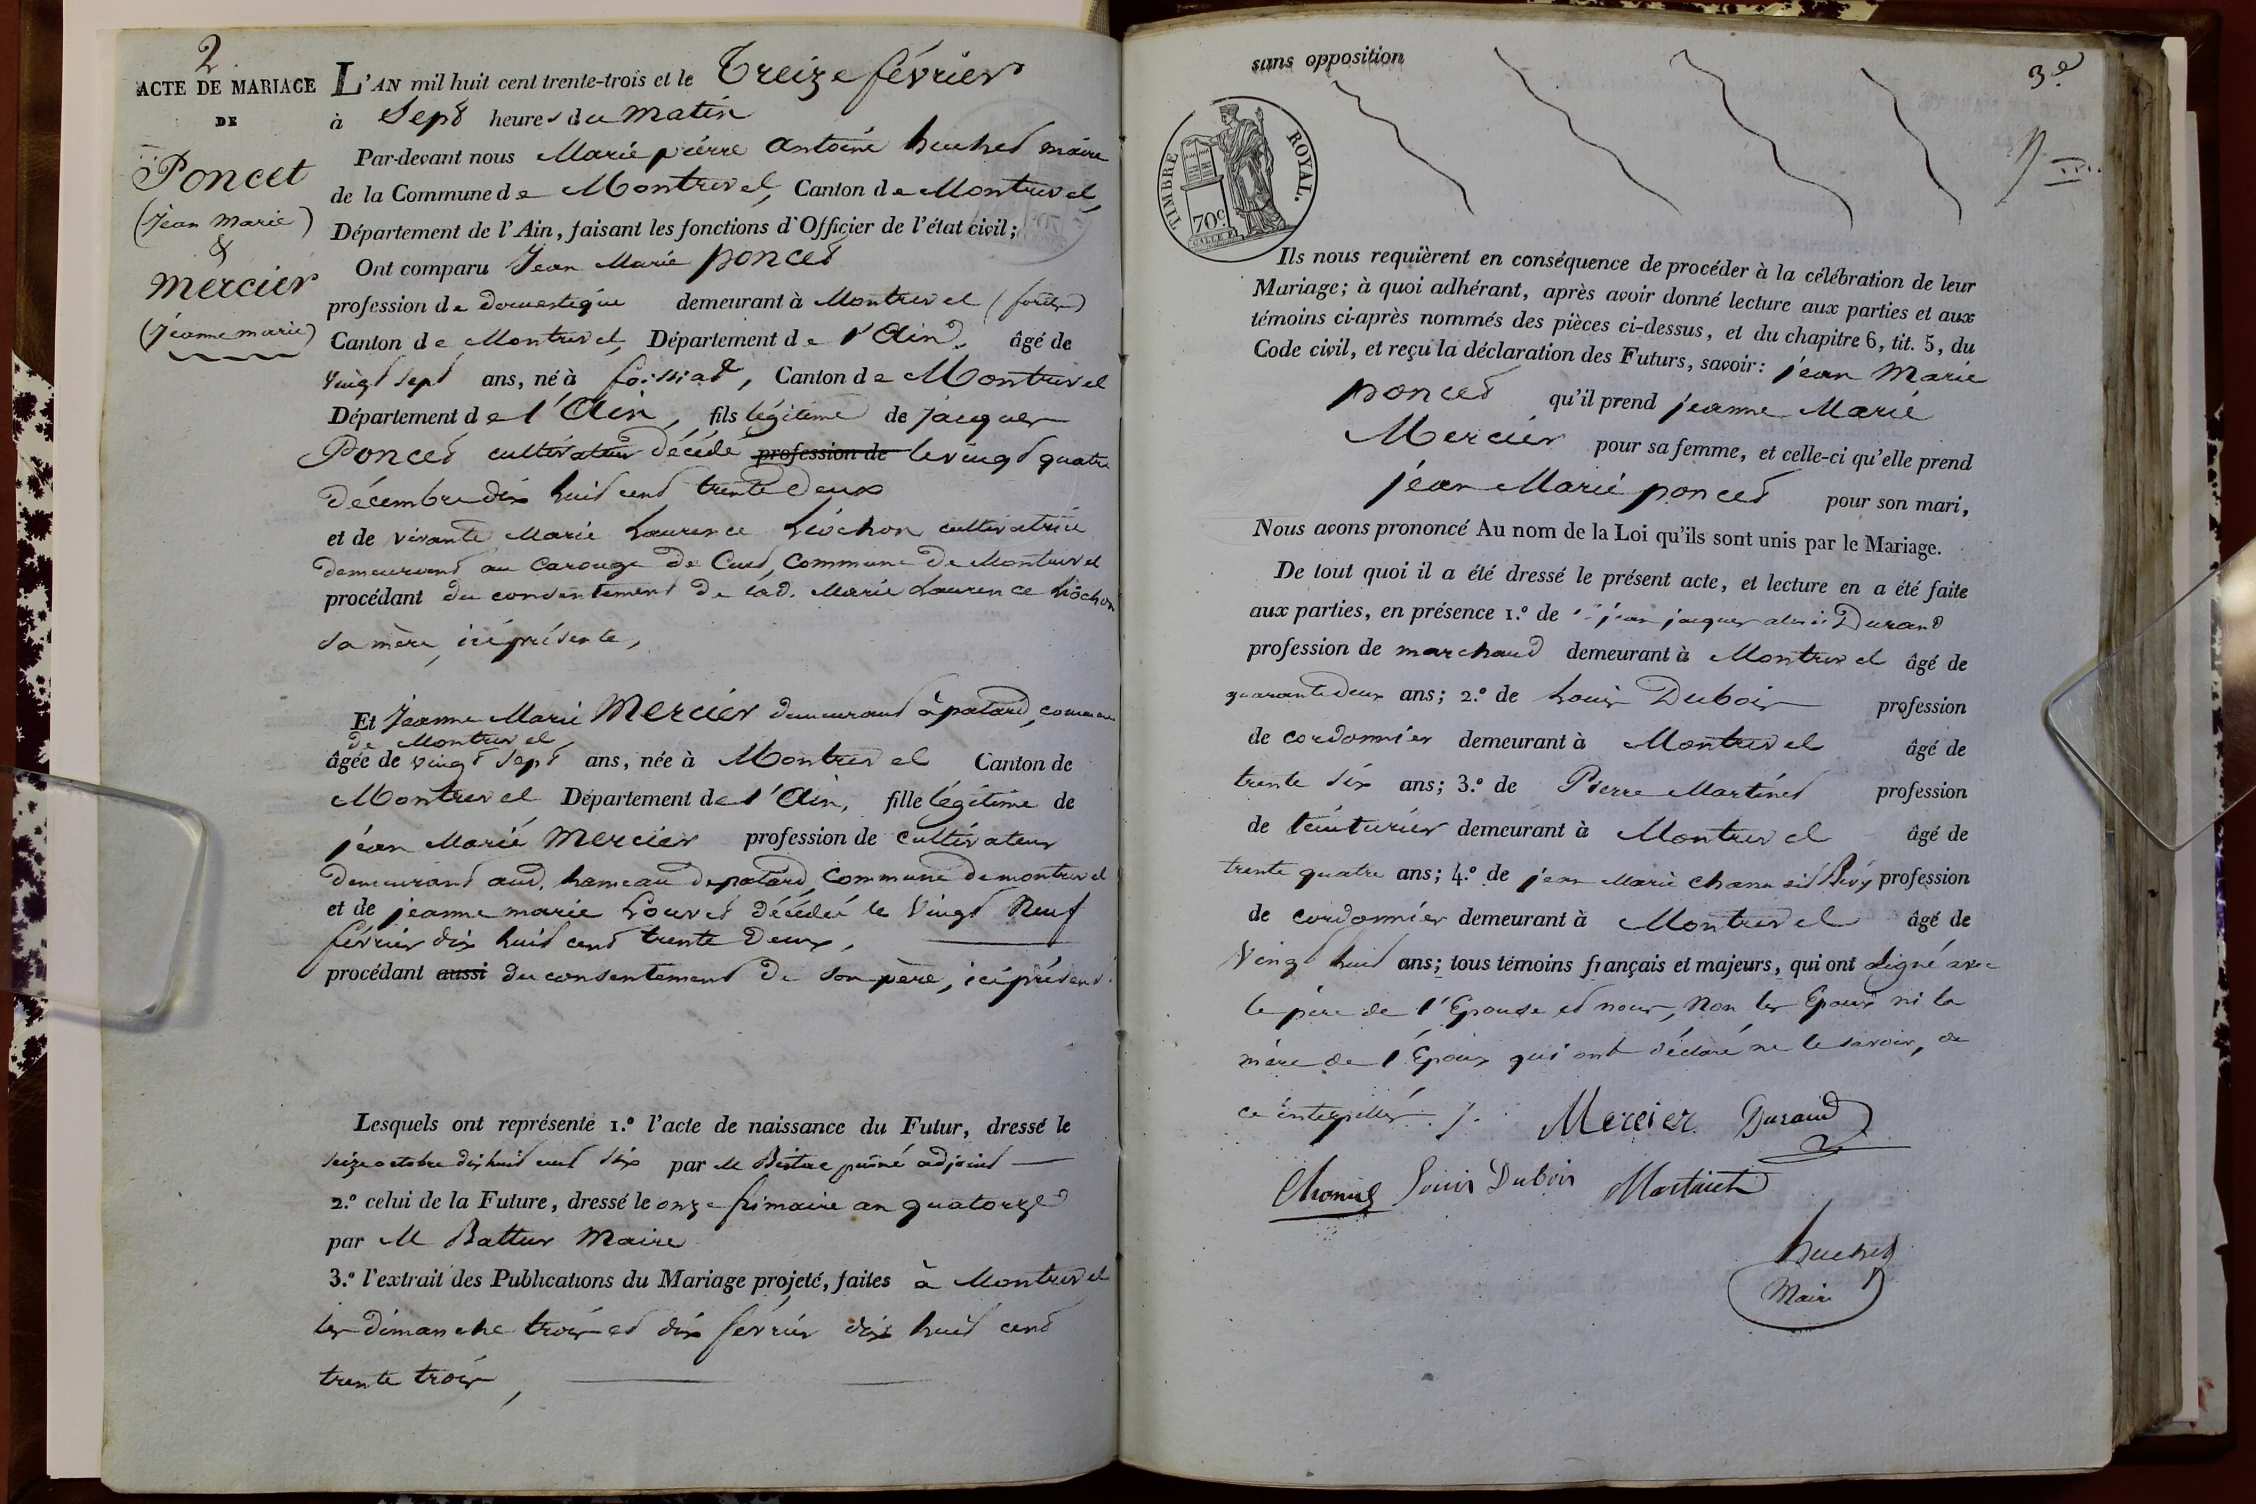 2
ACTE DE MARIAGE
DE
Poncet
(Jean Marie)
&
Mercier
(Jeanne marie)
L'AN mil huit cent trente-trois et le Treize février
à Sept heures du matin
Par-devant nous Marie pierre Antoine huchet maire
de la Commune de Montrevel, Canton de Montrevel,
Département de l'Ain, faisant les fonctions d'Officier de l'état civil;
Ont comparu Jean Marie poncet
profession de domestique demeurant à Montrevel
Canton de Montrevel, Département de l'Ain, âgé de
vingt sept ans, né à foissiat, Canton de Montrevel
Département de l'Ain, fils légitime de jacques
Poncet cultivateur décédé profession de le vingt quatre
décembre dix huit cent trente deux
et de vivante Marie Laurence Liochon cultivatrice
demeurant au Carouge de Cuet, commune de Montrevel
procédant du consentement de lad. Marie Laurence Liochon
sa mère, ici présente,
Et Jeanne Marie Mercier demeurant à patard, commune
de Montrevel,
âgée de vingt sept ans, née à Montrevel Canton de
Montrevel Département de l'Ain, fille légitime de
jean Marie Mercier profession de cultivateur
demeurant aud. hameau de patard, commune de montrevel
et de jeanne marie Louvet décédée le vingt Neuf
février dix huit cent trente deux,
procédant aussi du consentement de son père, ici présent.
Lesquels ont représenté 1.º l'acte de naissance du Futur, dressé le
seize octobre dix huit cent six par M puîné adjoint
2.º celui de la Future, dressé le onze frimaire an quatorze
par M Battur Maire
3.º l'extrait des Publications du Mariage projeté, faites à Montrevel
les dimanche trois et dix février dix huit cent
trente trois,
sans opposition
3e
TIMBRE ROYAL.
70c
Ils nous requièrent en conséquence de procéder à la célébration de leur
Mariage; à quoi adhérant, après avoir donné lecture aux parties et aux
témoins ci-après nommés des pièces ci-dessus, et du chapitre 6, tit. 5, du
Code civil, et reçu la déclaration des Futurs, savoir: jean Marie
poncet qu'il prend jeanne Marie
Mercier pour sa femme, et celle-ci qu'elle prend
jean Marie poncet pour son mari,
Nous avons prononcé Au nom de la Loi qu'ils sont unis par le Mariage.
De tout quoi il a été dressé le présent acte, et lecture en a été faite
aux parties, en présence 1.º de jean jacques Durand
profession de marchand demeurant à Montrevel âgé de
quarante deux ans; 2.º de Louis Dubois profession
de cordonnier demeurant à Montrevel âgé de
trente six ans; 3.º de Pierre Martinet profession
de teinturier demeurant à Montrevel âgé de
trente quatre ans; 4.º de jean Marie profession
de cordonnier demeurant à Montrevel âgé de
Vingt huit ans; tous témoins français et majeurs, qui ont signé avec
le père de l'Epouse et nous, Non les Epoux ni la
mère de l'Epoux qui ont déclaré ne le savoir, de
ce interpellés
Mercier Durand
Louis Dubois Martinet
huchet
Maire